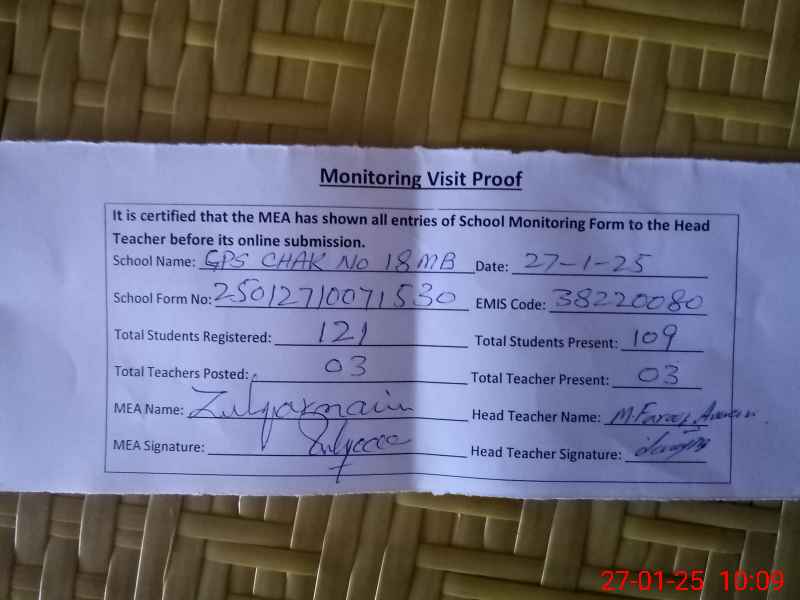 Monitoring Visit Proof
It is certified that the MEA has shown all entries of School Monitoring Form to the Head
Teacher before its online submission.
School Name: GPS CHAK No 18MB Date: 27-1-25
School Form No: 25012710071530 EMIS Code: 38220080
Total Students Registered: 121 Total Students Present: 109
Total Teachers Posted: 03 Total Teacher Present: 03
MEA Name: Zulqarnain Head Teacher Name: M.Farooq
MEA Signature: Head Teacher Signature:
27-01-25 10:09